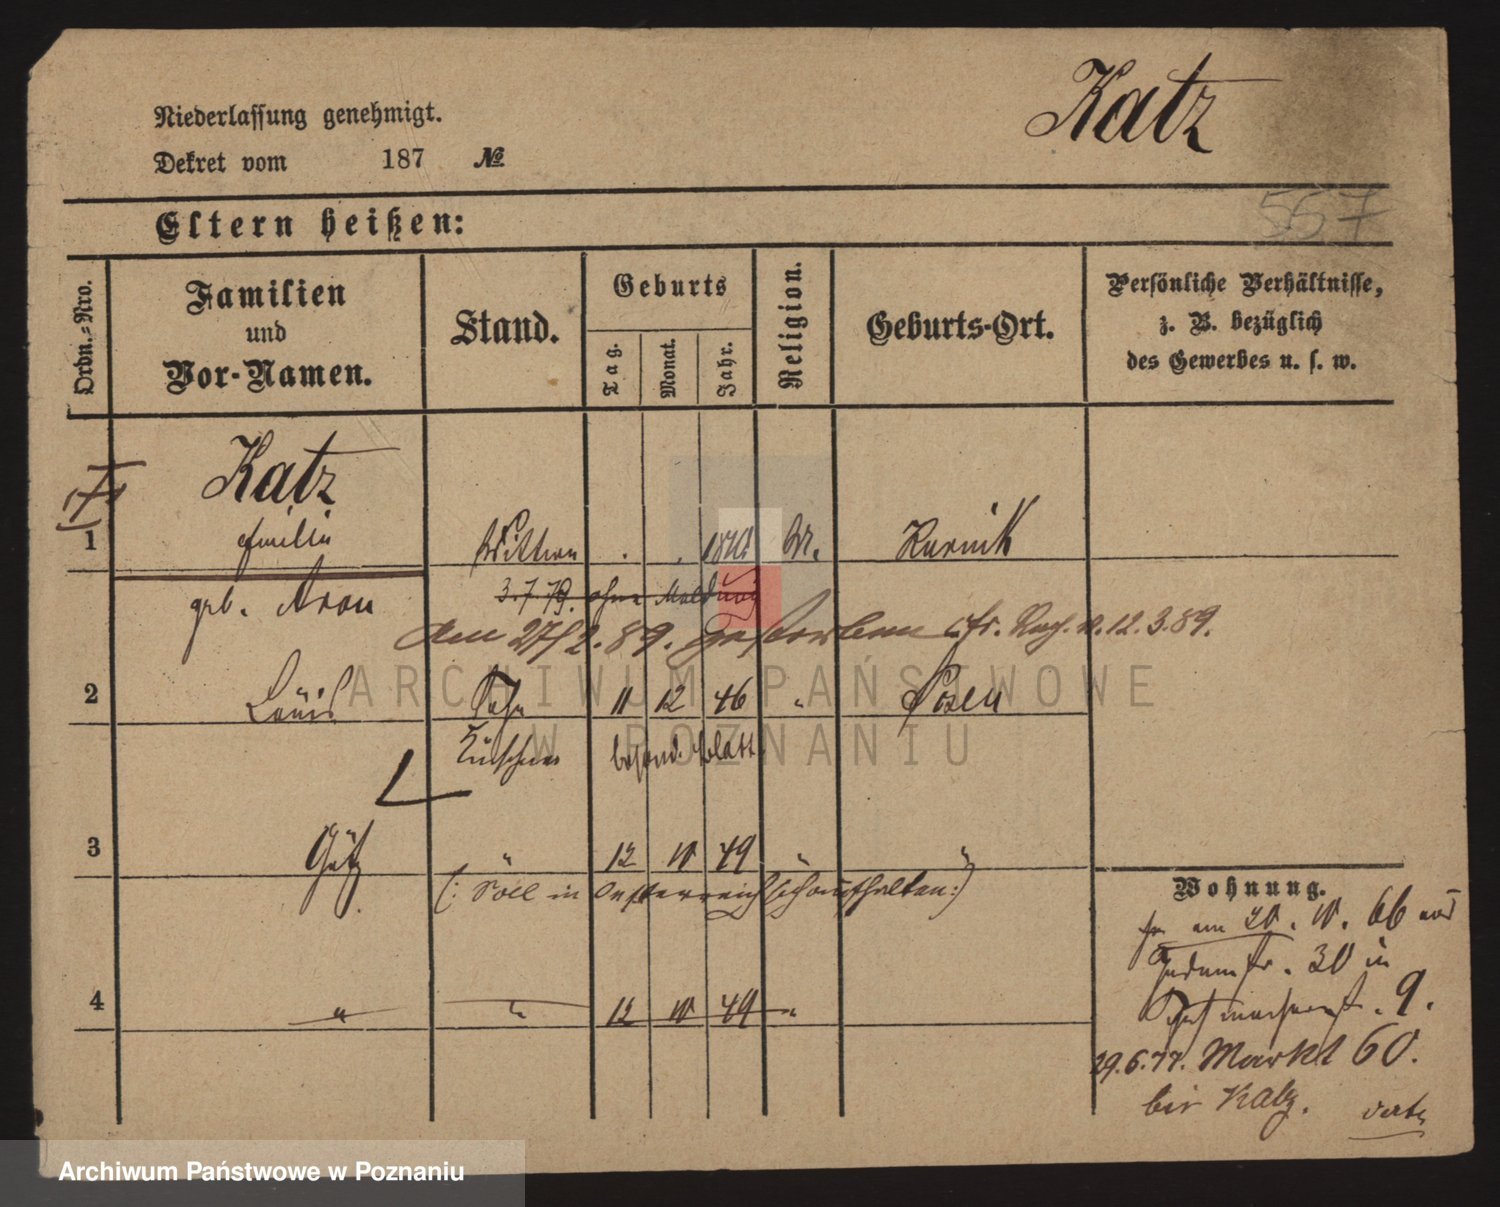 Katz
Niederlassung genehmigt.
Dekret vom 187 №
557
Eltern heißen:
Ordn.-Nro.
Familien
und
Vor-Namen.
Stand.
Geburts
Tag.
Monat.
Jahr.
Religion.
Geburts-Ort.
Persönliche Verhältnisse,
z. B. bezüglich
des Gewerbes u. s. w.
Katz
1 Emilie Wittwe Kurnik
geb. Aron
3.7.79. ohne Meldung
am 27/2.89. gestorben 12.3.89.
2 Louis Sohn 11 12 46 " Posen
Kutscher besond. Blatt
3 Götz " 12 10 49 " "
(: Soll in Oesterreich sich aufhalten :)
4 " " 12 10 49 "
Wohnung.
am 20. 10. 66 aus
Judenstr. 30 in
Schuhmacherstr. 9.
29.6.77. Markt 60.
bei Katz.
verte
ARCHIWUM PAŃSTWOWE
W POZNANIU
Archiwum Państwowe w Poznaniu